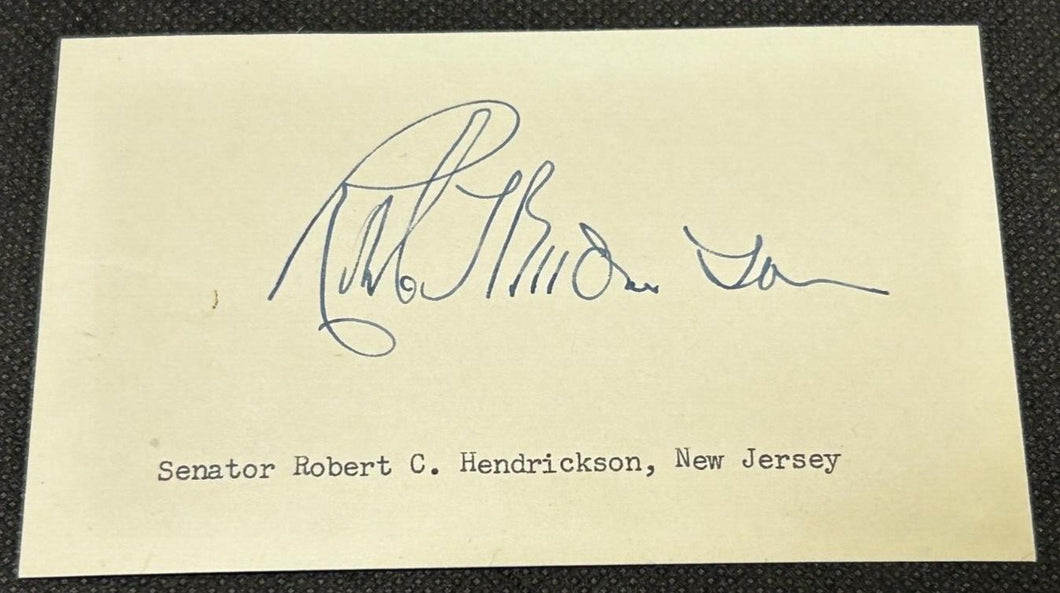 Robt. C. Hendrickson
Senator Robert C. Hendrickson, New Jersey